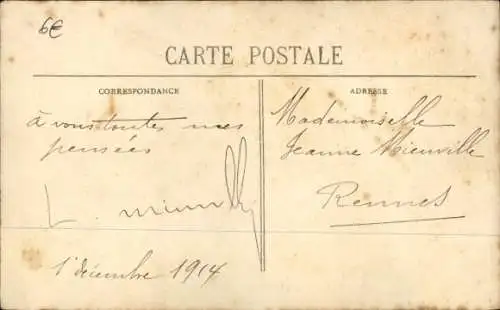 6€
CARTE POSTALE
CORRESPONDANCE
à vous toutes mes
pensées
L.
1 décembre 1914
ADRESSE
Mademoiselle
Jeanne Mieuville
Rennes